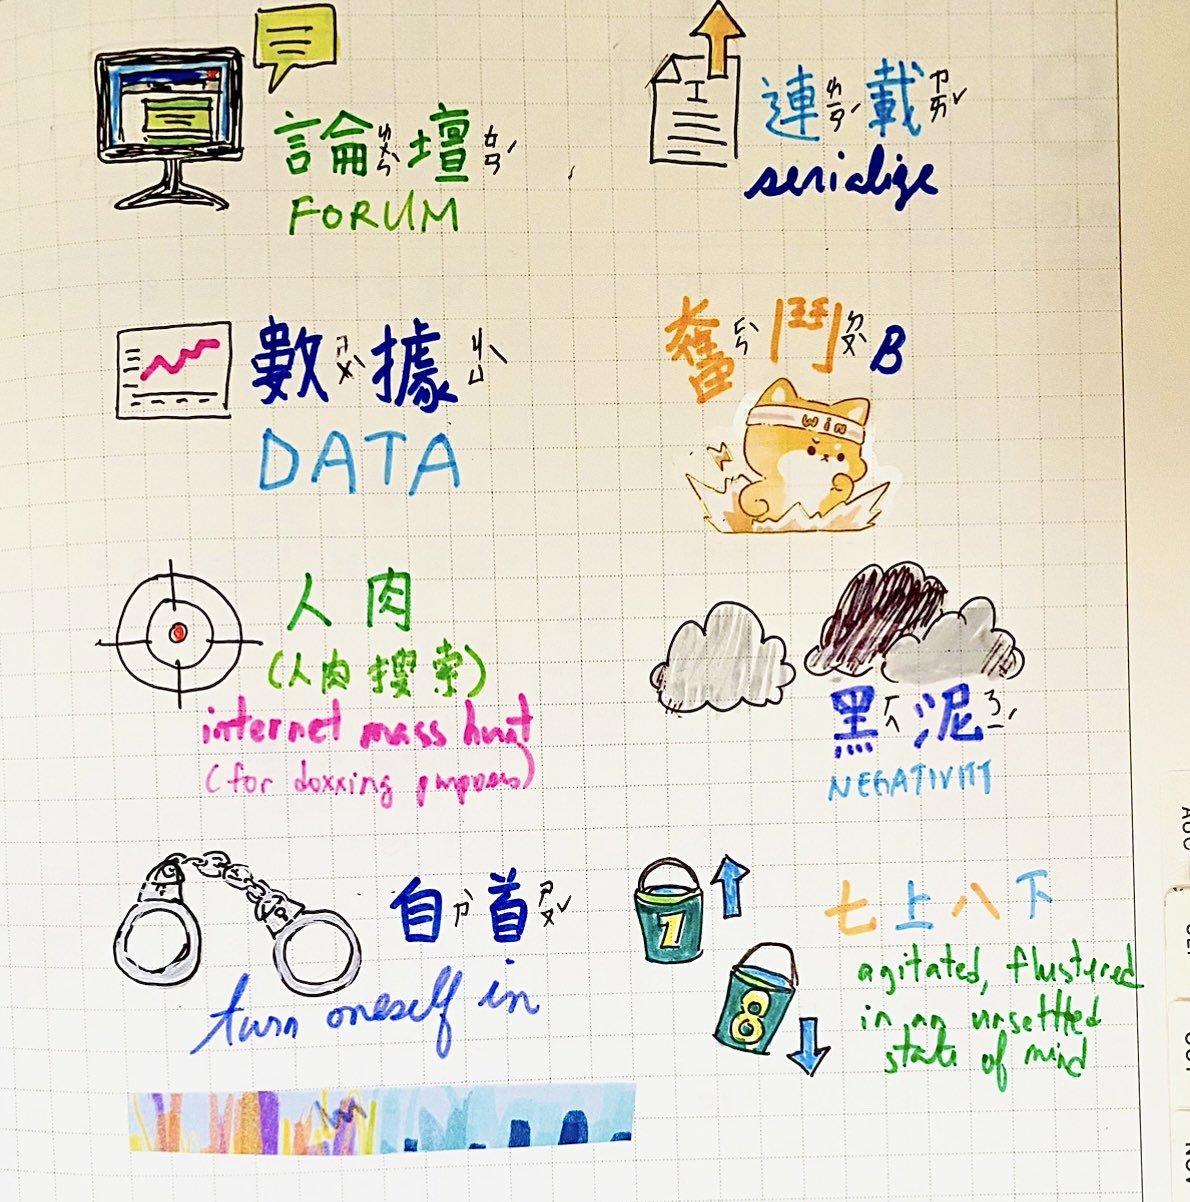 論ㄌㄨㄣˋ壇ㄊㄢˊ
FORUM
連ㄌㄧㄢˊ載ㄗㄞˇ
serialize
數ㄕㄨˋ據ㄐㄩˋ
DATA
奮ㄈㄣˋ鬥ㄉㄡˋB
win
人肉
(人肉搜索)
internet mass hunt
(for doxxing purposes)
黑ㄏㄟ泥ㄋㄧˊ
NEGATIVITY
自ㄗˋ首ㄕㄡˇ
turn oneself in
7
8
七上八下
agitated, flustered
in an unsettled
state of mind
AUG
SEP
OCT
NOV